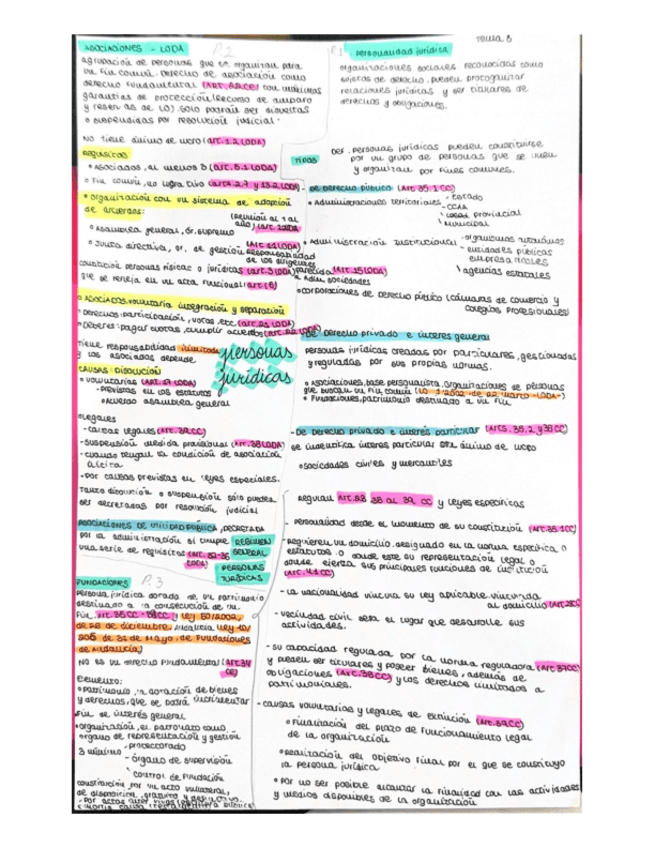 Tema 8
P.1 Personalidad jurídica
organizaciones sociales reconocidas como
sujetos de derecho, pueden protagonizar
relaciones jurídicas y ser titulares de
derechos y obligaciones.
Def. personas jurídicas pueden constituirse
por un grupo de personas que se unen
y organizan por fines comunes.
TIPOS
- De derecho público (Art. 35.1 CC)
• Administraciones territoriales - Estado
- CCAA
- Local provincial
municipal
• Administración institucional - organismos autónomos
- entidades públicas
empresariales
agencias estatales
• corporaciones de derecho público (cámaras de comercio y
colegios profesionales)
De Derecho privado e interés general
personas jurídicas creadas por particulares, gestionadas
y reguladas por sus propias normas.
• Asociaciones, base personalista, organizaciones de personas
que buscan un fin común (LO 1/2002 de 22 marzo -LODA-)
• Fundaciones, patrimonio destinado a un fin
- De derecho privado e interés particular (Arts. 35.2 y 36 CC)
se identifica interés particular con ánimo de lucro
• sociedades civiles y mercantiles
Regulan Art. 28, 35 al 39 CC y leyes específicas
- Personalidad desde el momento de su constitución (Art. 35.1 CC)
- Requieren un domicilio, designado en la norma específica o
estatutos o donde este su representación legal o
donde ejerza sus principales funciones de institución
(Art. 41 CC)
- La nacionalidad vincula su ley aplicable vinculada
al domicilio (Art. 28 CC)
- vecindad civil será el lugar que desarrolle sus
actividades.
- su capacidad regulada por la norma reguladora (Art. 37 CC)
y pueden ser titulares y poseer bienes, además de
obligaciones (Art. 38 CC) y los derechos limitados a
patrimoniales.
- causas voluntarias y legales de extinción (Art. 39 CC)
• Finalización del plazo de funcionamiento legal
de la organización
• Realización del objetivo final por el que se constituyó
la persona jurídica
• Por no ser posible alcanzar la finalidad con las actividades
y medios disponibles de la organización
personas
jurídicas
REGIMEN
GENERAL
PERSONAS
JURÍDICAS
ASOCIACIONES - LODA P.2
agrupación de personas que se organizan para
un fin común. Derecho de asociación como
derecho fundamental (Art. 22 CE) con máximas
garantías de protección (recurso de amparo
y reservas de LO). Solo podrán ser disueltas
o suspendidas por resolución judicial.
No tiene ánimo de lucro (art. 1.2 LODA)
REQUISITOS
• Asociados, al menos 3 (Art. 5.1 LODA)
• Fin común, no lucrativo (arts. 2.7 y 13.2 LODA)
• Organización con un sistema de adopción
de acuerdos:
• Asamblea general, ór. supremo (reunión al 1 al
año)
• Junta directiva, or. de gestión (Art. 11 LODA)
Responsabilidad
de los dirigentes
(Art. 15 LODA)
constitución personas físicas o jurídicas (art. 3 LODA) parecida
a sociedades
que se refleja en un acta fundacional (art. 6)
• ASOCIADOS: voluntaria integración y separación
• Derechos: participación, votos, etc. (art. 21 LODA)
• Deberes: pagar cuotas, cumplir acuerdos (art. 22 LODA)
tiene responsabilidad ilimitada
y los asociados depende
CAUSAS DISOLUCIÓN
• voluntarias (Art. 17 LODA)
- Previstas en los estatutos
- Acuerdo asamblea general
• Legales
- causas legales (Art. 39 CC)
- suspensión medida provisional (Art. 38 LODA)
- cuando tengan la condición de asociación
ilícita
- Por causas previstas en leyes especiales.
Tanto disolución o suspensión sólo pueden
ser decretadas por resolución judicial
ASOCIACIONES DE UTILIDAD PÚBLICA, decretada
por la administración si cumple
una serie de requisitos (Art. 32-36
LODA)
FUNDACIONES P.3
Persona jurídica dotada de un patrimonio
destinado a la consecución de un
fin. Art. 35 CC - 39 CC y Ley 50/2002,
de 26 de diciembre. Andalucía Ley 10/
2005 de 31 de Mayo, de Fundaciones
de Andalucía)
No es un derecho fundamental (Art 34
CE)
Elemento:
• Patrimonio, la dotación de bienes
y derechos, que se podrá incrementar
Fin de interés general
• organización, el patronato como
órgano de representación y gestión
3 mínimo - protectorado
- órgano de supervisión
control de fundación
constitución por un acto unilateral,
de disposición, gratuito y
- Por actos inter vivos (escritura pública)